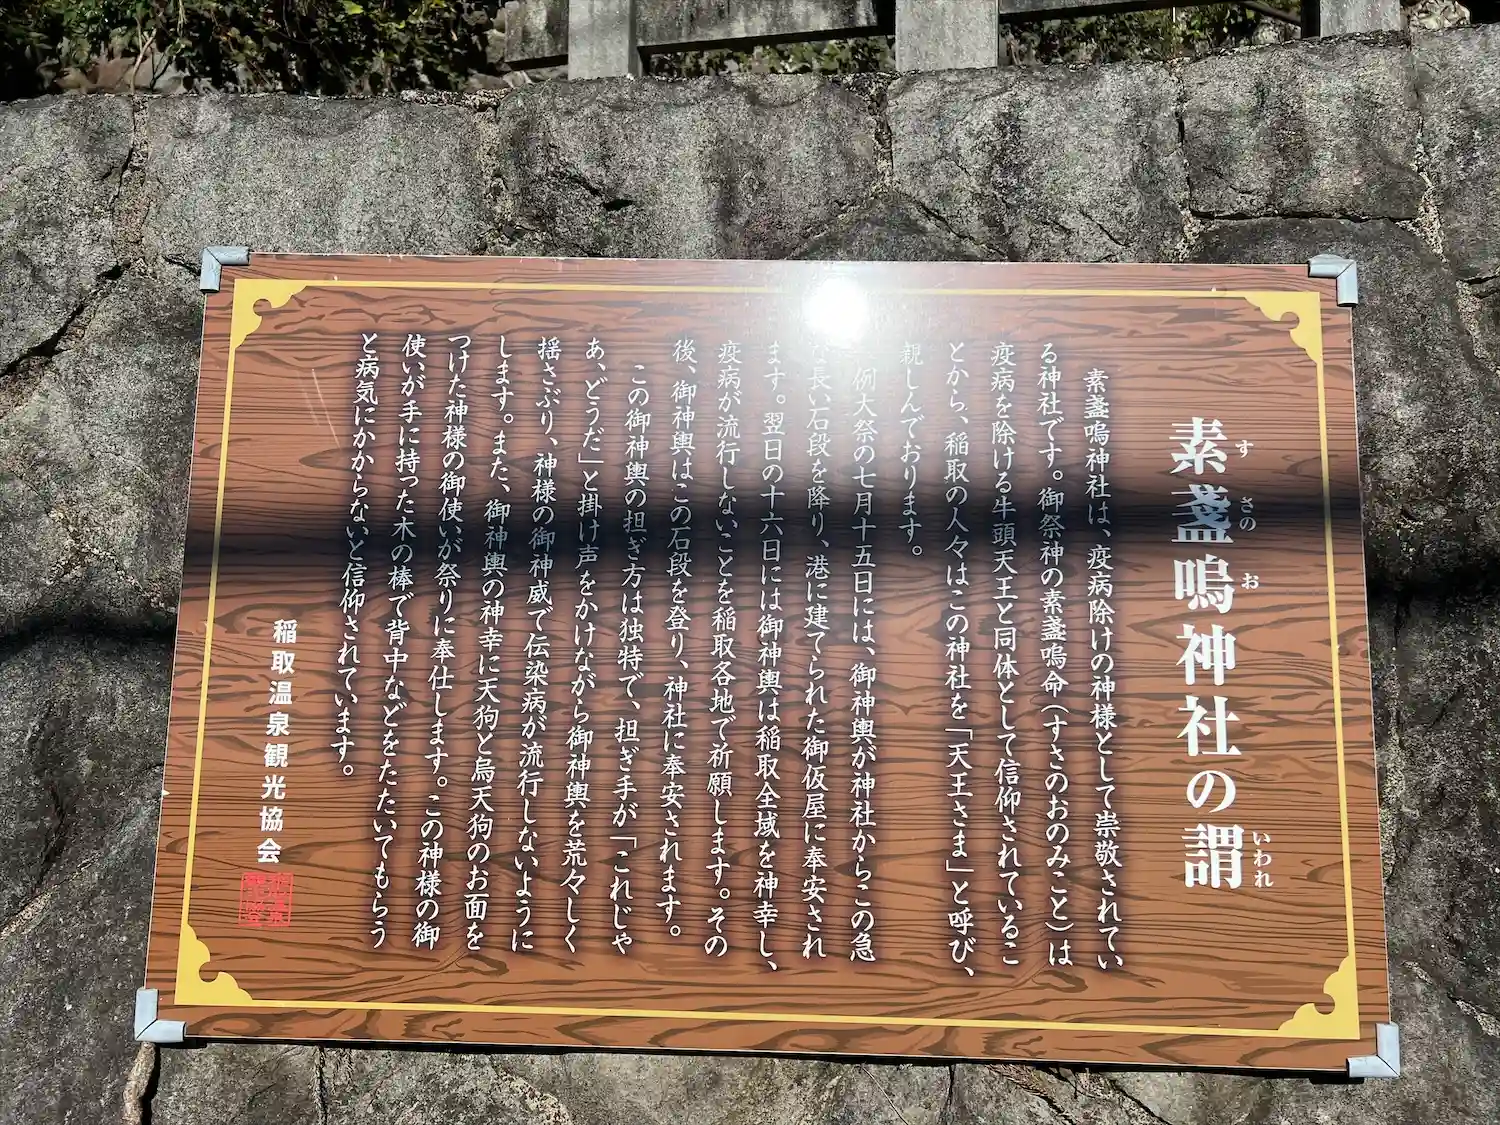 素盞嗚神社の謂
すさのお
いわれ
素盞嗚神社は、疫病除けの神様として崇敬されてい
る神社です。御祭神の素盞嗚命（すさのおのみこと）は
疫病を除ける牛頭天王と同体として信仰されているこ
とから、稲取の人々はこの神社を「天王さま」と呼び、
親しんでおります。
例大祭の七月十五日には、御神輿が神社からこの急
な長い石段を降り、港に建てられた御仮屋に奉安され
ます。翌日の十六日には御神輿は稲取全域を神幸し、
疫病が流行しないことを稲取各地で祈願します。その
後、御神輿はこの石段を登り、神社に奉安されます。
この御神輿の担ぎ方は独特で、担ぎ手が「これじゃ
あ、どうだ」と掛け声をかけながら御神輿を荒々しく
揺さぶり、神様の御神威で伝染病が流行しないように
します。また、御神輿の神幸に天狗と烏天狗のお面を
つけた神様の御使いが祭りに奉仕します。この神様の御
使いが手に持った木の棒で背中などをたたいてもらう
と病気にかからないと信仰されています。
稲取温泉観光協会